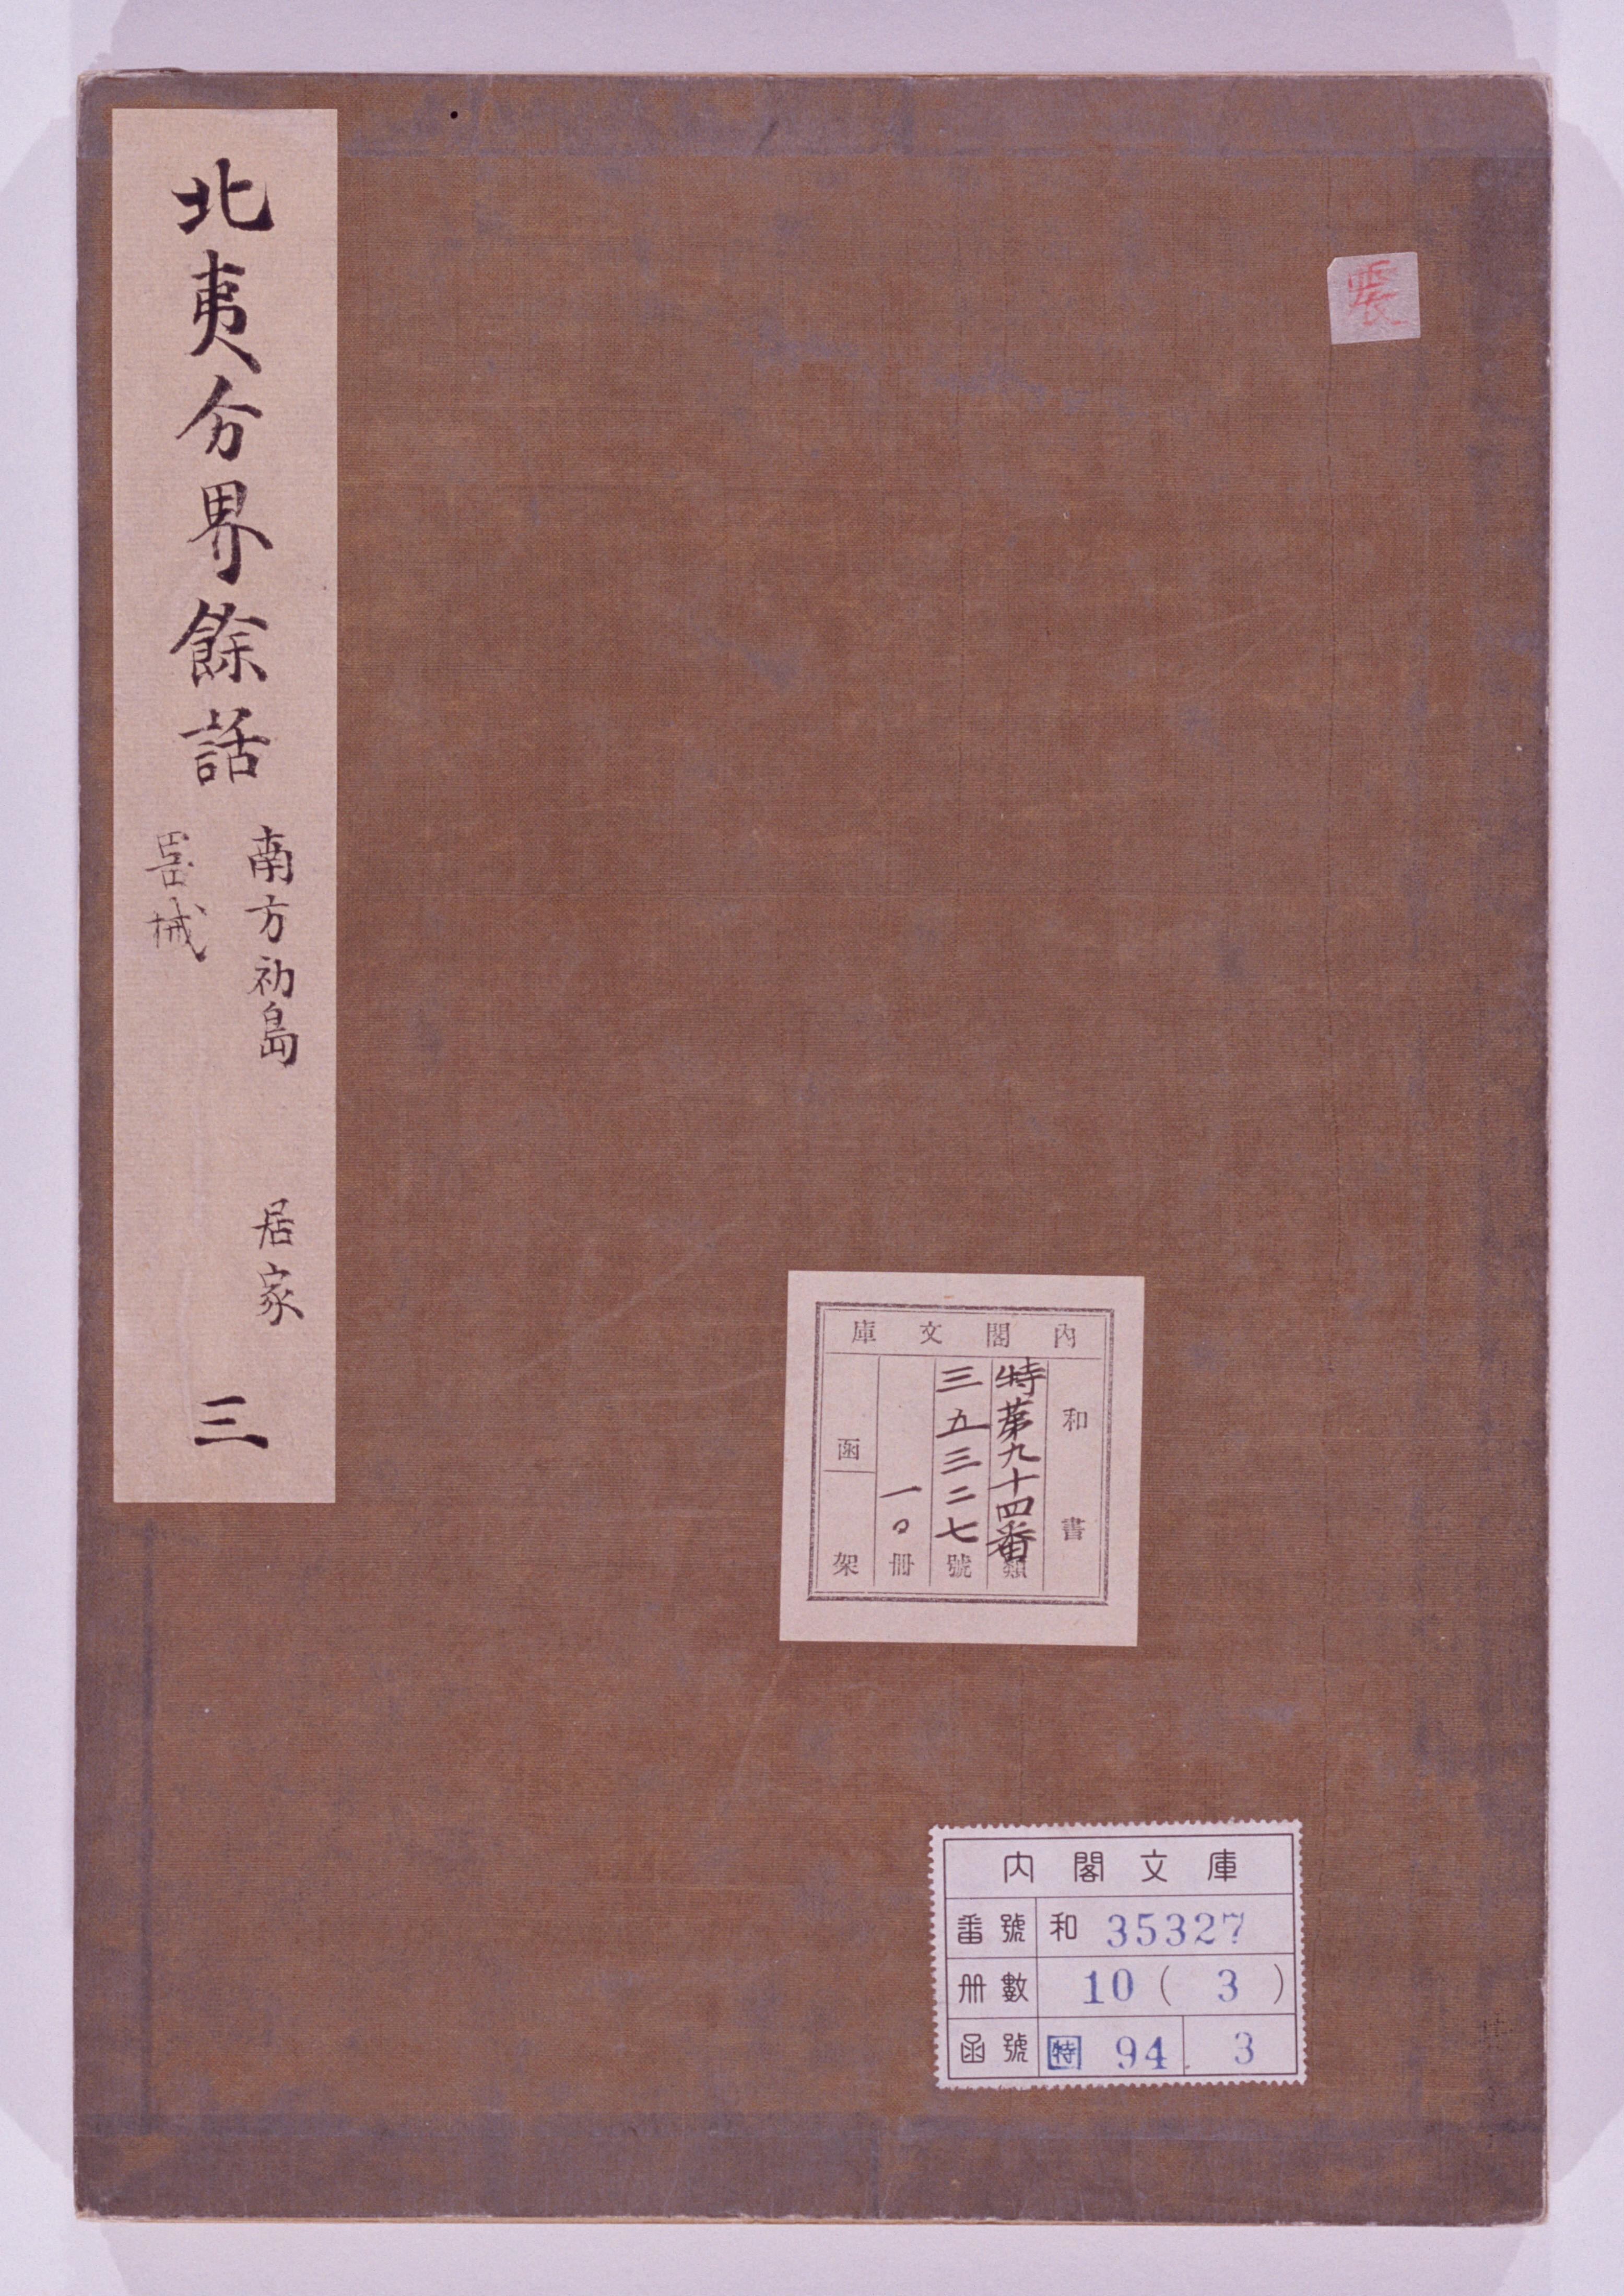 北夷分界餘話
南方初島　居家
器械
三
內閣文庫
和書
特第九十四番類
三五三二七號
一〇冊
函
架
內閣文庫
番號 和 35327
册數 10 ( 3 )
函號 特 94 3